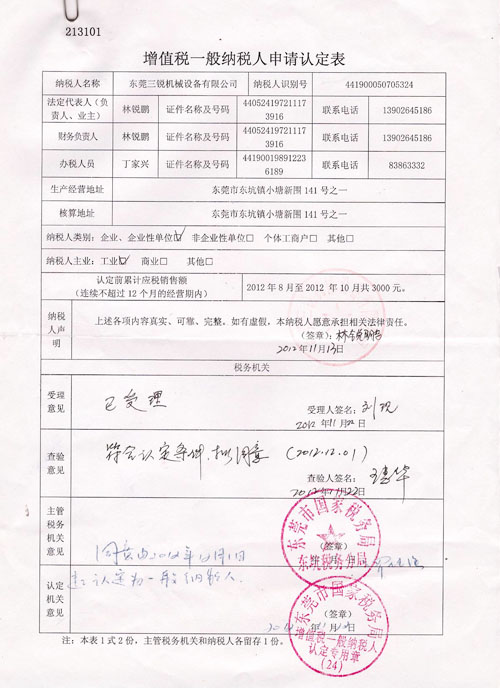 213101
增值税一般纳税人申请认定表
纳税人名称 东莞三锐机械设备有限公司 纳税人识别号 441900050705324
法定代表人（负责人、业主） 林锐鹏 证件名称及号码 440524197211173916 联系电话 13902645186
财务负责人 林锐鹏 证件名称及号码 440524197211173916 联系电话 13902645186
办税人员 丁家兴 证件名称及号码 441900198912236189 联系电话 83863332
生产经营地址 东莞市东坑镇小塘新围 141 号之一
核算地址 东莞市东坑镇小塘新围 141 号之一
纳税人类别：企业、企业性单位☑ 非企业性单位□ 个体工商户□ 其他□
纳税人主业：工业☑ 商业□ 其他□
认定前累计应税销售额
（连续不超过 12 个月的经营期内） 2012 年 8 月至 2012 年 10 月共 3000 元。
纳税人声明 上述各项内容真实、可靠、完整。如有虚假，本纳税人愿意承担相关法律责任。
（签章）：林锐鹏
2012年11月13日
税务机关
受理意见 已受理
受理人签名：
2012年11月22日
查验意见 符合认定条件，拟同意 (2012.12.01)
查验人签名：
2012年11月22日
主管税务机关意见
（签章）
东莞市国家税务局
东坑税务分局
同意由2012年12月1日
起认定为一般纳税人.
认定机关意见
（签章）
东莞市国家税务局
增值税一般纳税人
认定专用章
(24)
注：本表 1 式 2 份，主管税务机关和纳税人各留存 1 份。